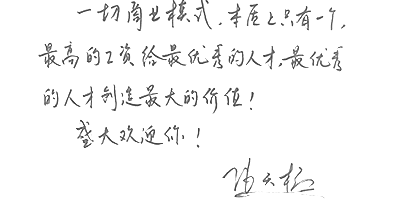 一切商业模式，本质上只有一个，
最高的工资给最优秀的人才，最优秀
的人才创造最大的价值！
盛大欢迎你！
陈天桥